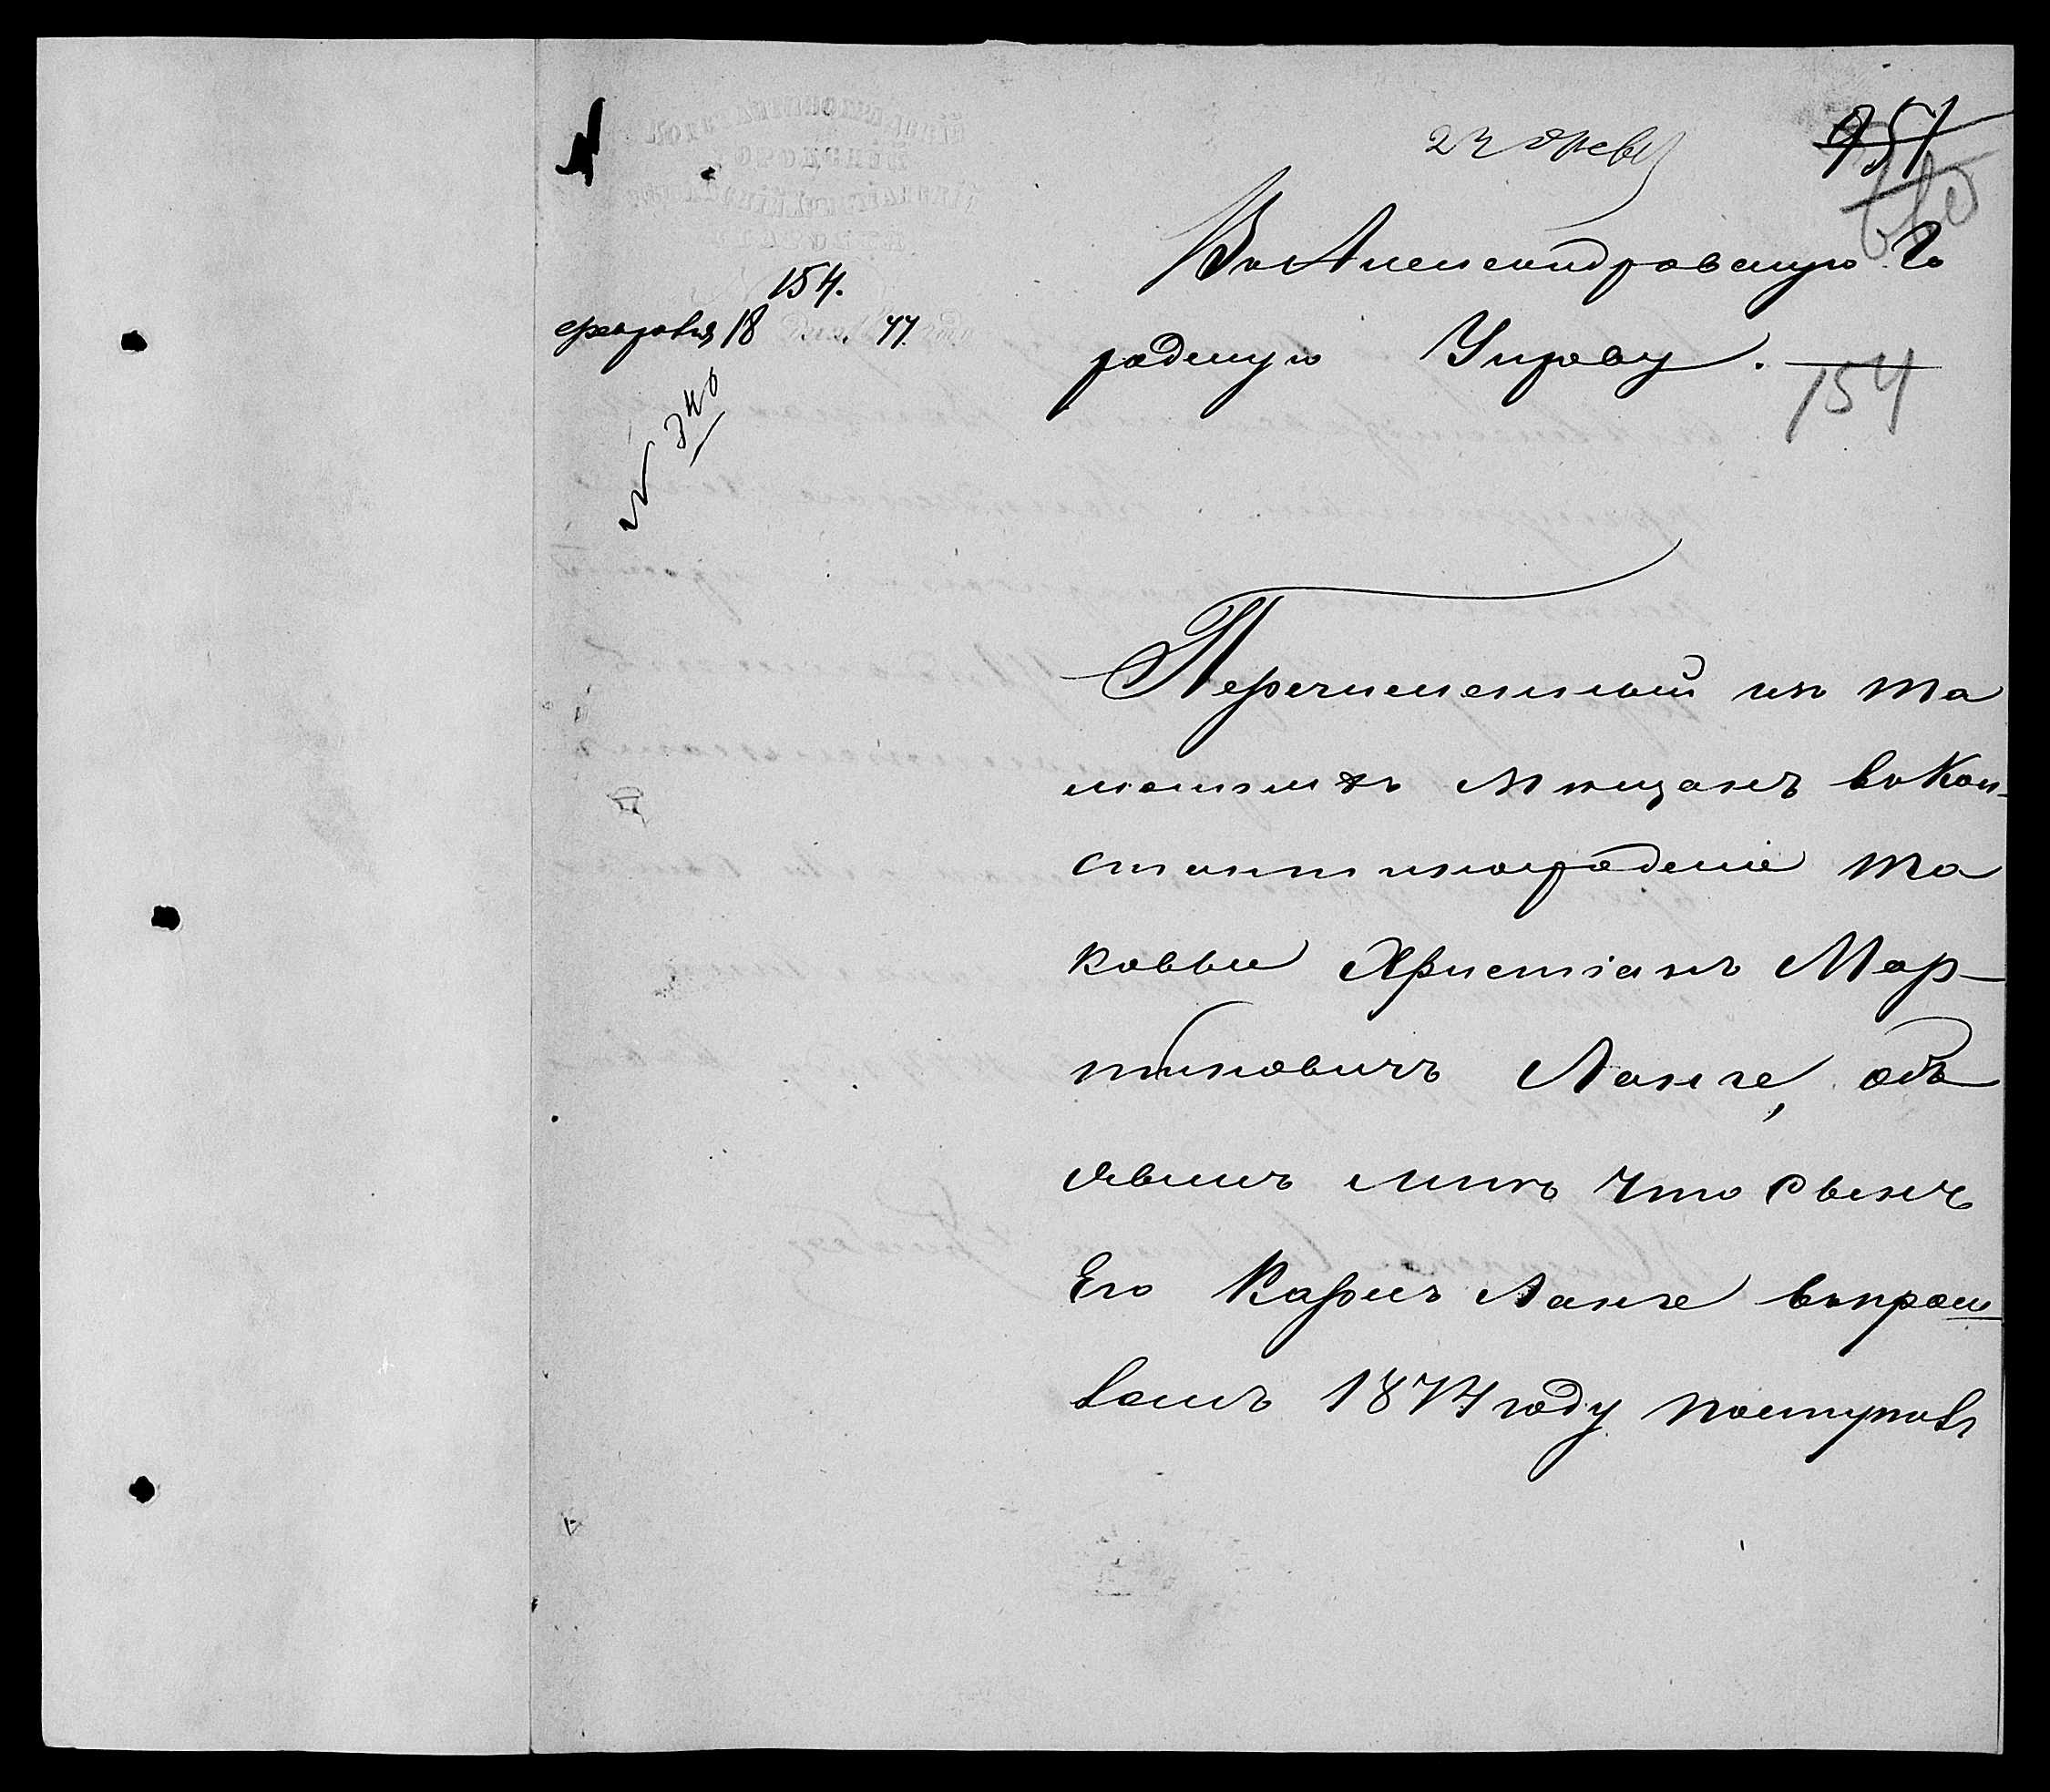 Константиноградскій
Городской
154.
февраля 18 дня 77 года
№ 340
22 февр
154
Въ Александровскую Го
родскую Управу.
154
Перечисленный изъ та
мошнихъ мѣщанъ въ Кон-
стантиноградскіе та
ковые Христіанъ Мар-
тиновичъ Ланге, объ
явилъ мнѣ что сынъ
Его Карлъ Ланге въ прош
ломъ 1874 году поступивъ